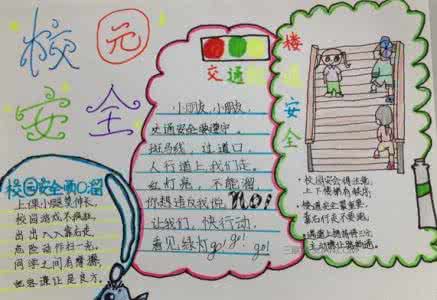 校园
安全
校园安全两口溜
上课小腿莫伸长,
校园游戏不拥挤,
出出入入靠右走,
危险动作扫一光,
同学之间有摩擦,
包容谦让是良方。
交通
小朋友,小朋友,
交通安全要遵守,
斑马线,过道口,
人行道上我们走。
红灯亮,不能溜,
你想违反我say no!
让我们,快行动,
看见绿灯go! go! go!
楼道安全
校园安全得注意,
上下楼梯有秩序,
楼道安全最重要,
靠右行走不要跑,
遇道上拥挤
主动